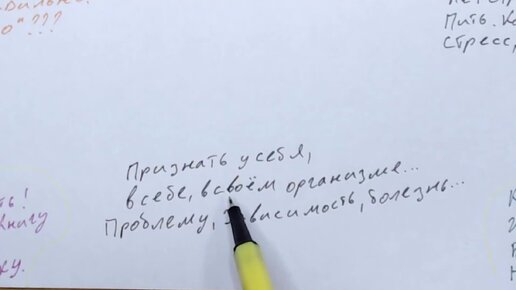 о" ???
Пить. Ко
стресс,
Признать у себя,
в себе, в своём организме...
Проблему, зависимость, болезнь...
ть!
книгу
ку.